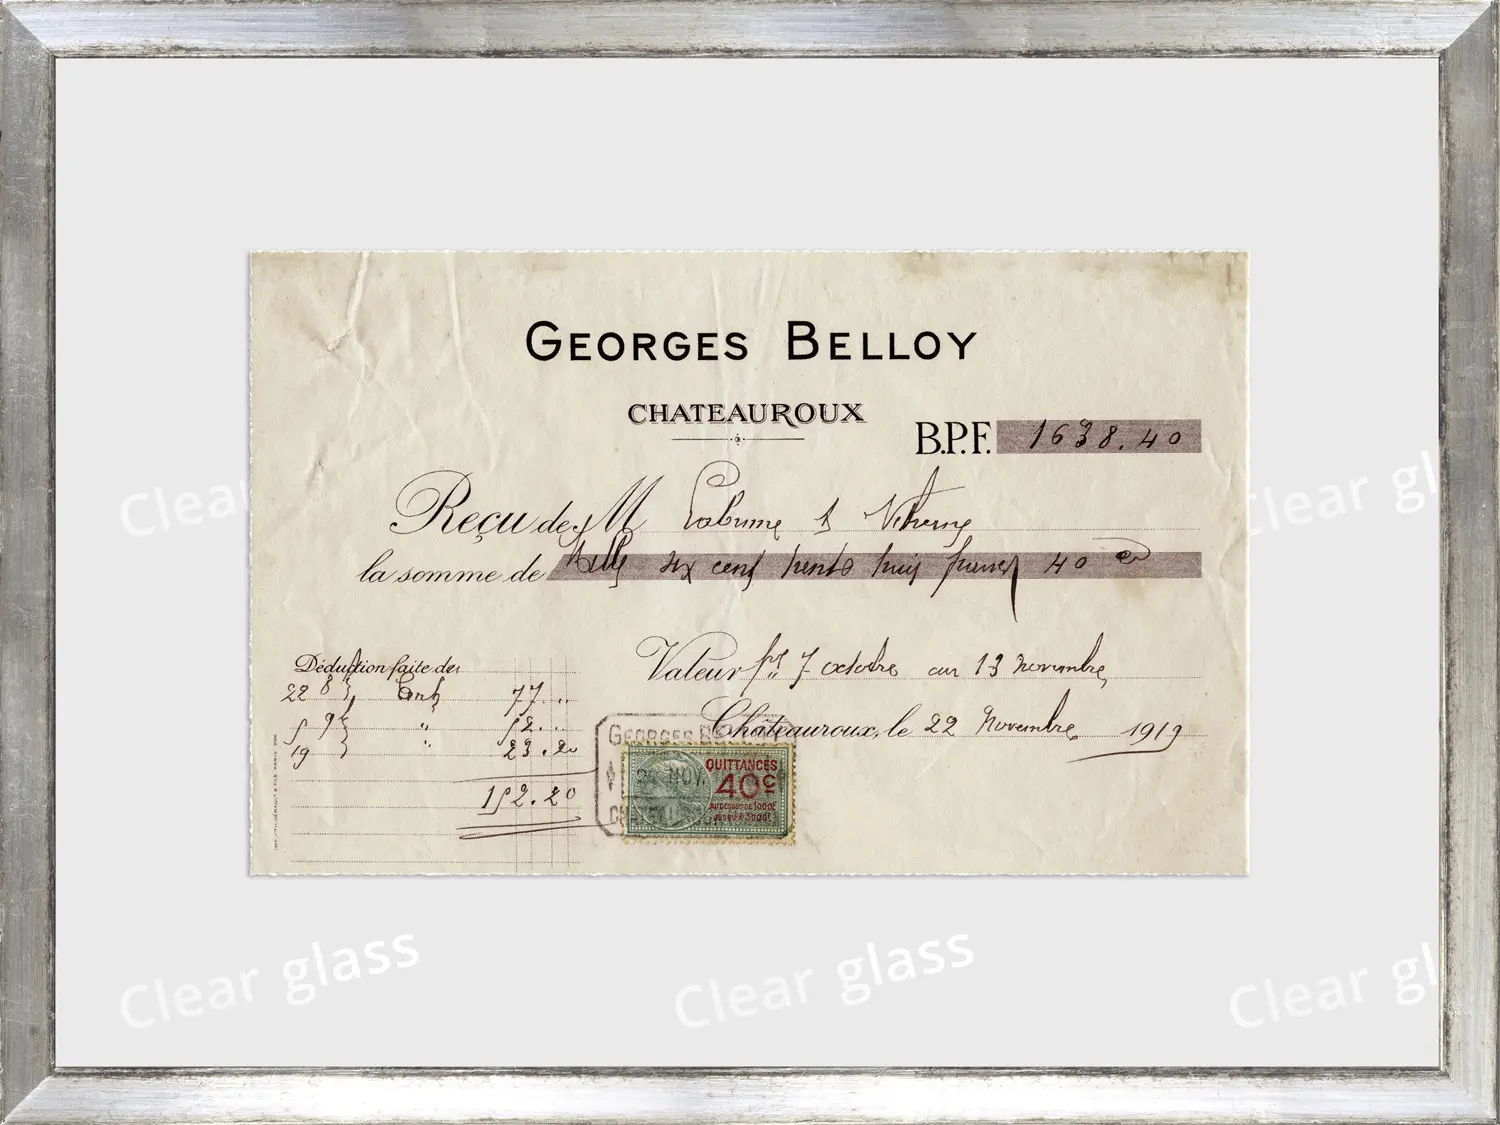 GEORGES BELLOY
CHATEAUROUX
B.P.F. 1638.40
Reçu de M
la somme de Mille six cent trente huit francs 40 c
Valeur 7 octobre au 13 novembre
Châteauroux, le 22 Novembre 1919
Déduction faite de:
22 8 77 ..
5 9 " 52 ...
19 " 23.20
152.20
GEORGES BELLOY
22 NOV.
CHATEAUROUX
QUITTANCES
40c
AU DESSUS DE 1000f
JUSQU'À 3000f
Clear
Clear gl
Clear glass
Clear glass
Clear gl